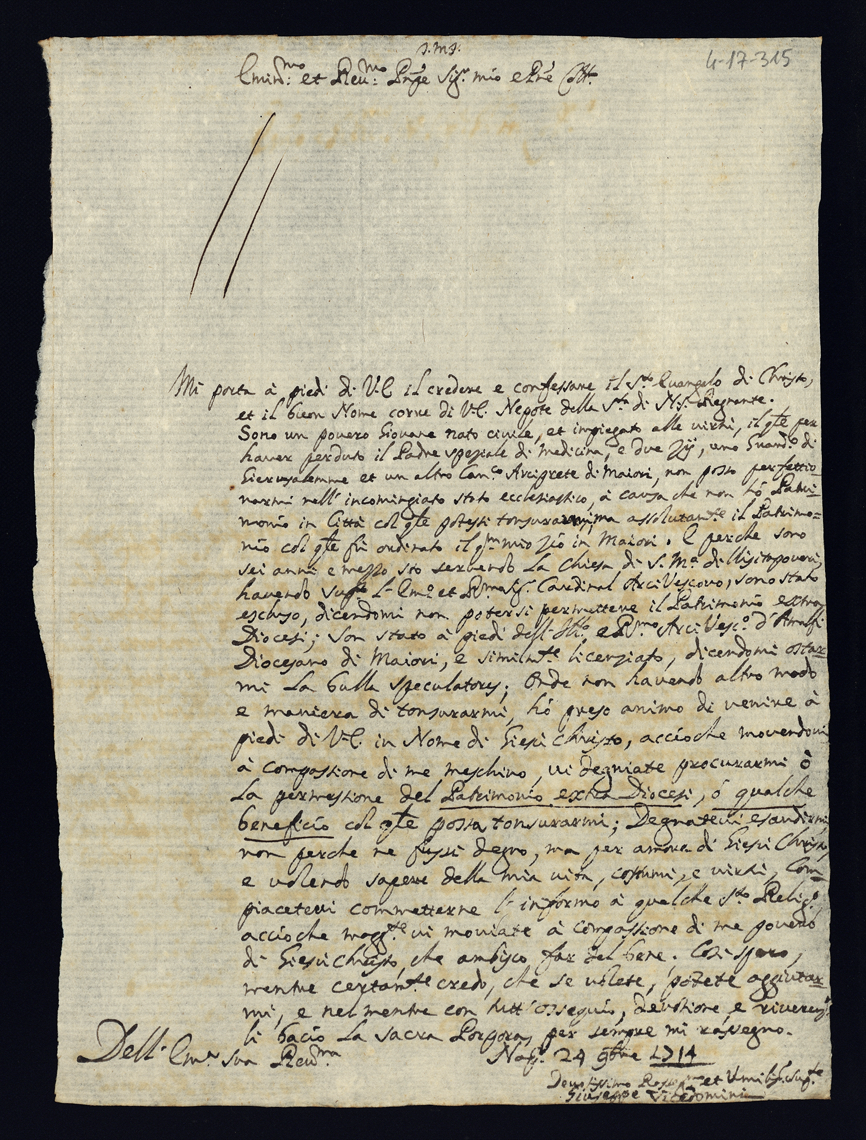 J.M.J.
4-17-315
Emin.mo et Reu.mo Pnpe Sig.r mio e Pne Coll.
Mi porta à piedi di V.E. il credere e confessare il S.to Euangelo di Christo,
et il buon Nome corre di V.E. Nepote della S.tà di N.S. Regnante.
Sono un pouero Giouane nato ciuile, et impiegato alle virtù, il qle per
hauer perduto il Padre speziale di medicina, e due Zij, uno Guard.o di
Gierusalemme et un altro Can.co Arciprete di Maiori, non posso perfettio-
narmi nell'incominciato stato ecclesiastico, à causa che non hò Patri-
monio in Città col qle potessi tonsurarmi, ma assolutam.te il Patrimo=
nio col qle fù ordinato il qm mio Zio in Maiori. E perche sono
sei anni e mezzo stò seruendo la Chiesa di S. M.a di Visitapoueri,
hauendo sup.to l'Em.o et R.mo Sig. Cardinal ArciVescouo, sono stato
escluso, dicendomi non potersi permettere il Patrimonio extra
Diocesi; Son stato à piedi dell'Ill.mo e R.mo ArciVesc.o d'Amalfi
Diocesano di Maiori, e similm.te licenziato, dicendomi ostar=
mi la bulla speculatores; Onde non hauendo altro modo
e maniera di tonsurarmi, hò preso animo di venire à
piedi di V.E. in Nome di Giesù Christo, acciò che mouendoui
à compassione di me meschino, vi degniate procurarmi ò
la permessione del Patrimonio extra Diocesi, ò qualche
beneficio col qle possa tonsurarmi; Degnateui esaudirmi
non perche ne fussi degno, ma per amor di Giesù Christo,
e volendo sapere della mia vita, costumi, e virtù, Com=
piaceteui commetterne l'informo à qualche S.to Relig.o
acciò che magg.te vi mouiate à compassione di me pouero
di Giesù Christo, che ambisco far del bene. Così spero,
mentre certam.te credo, che se volete, potete aggiutar=
mi, e nel mentre con tutt'ossequio, deuotione, e riuerenza
li bacio la sacra Porpora, per sempre mi rassegno.
Dell'Em.a Sua Reu.ma
Nap. 24 9bre 1714
Deuotissimo et Vmiliss. Sup.te
Giuseppe Vicedomini